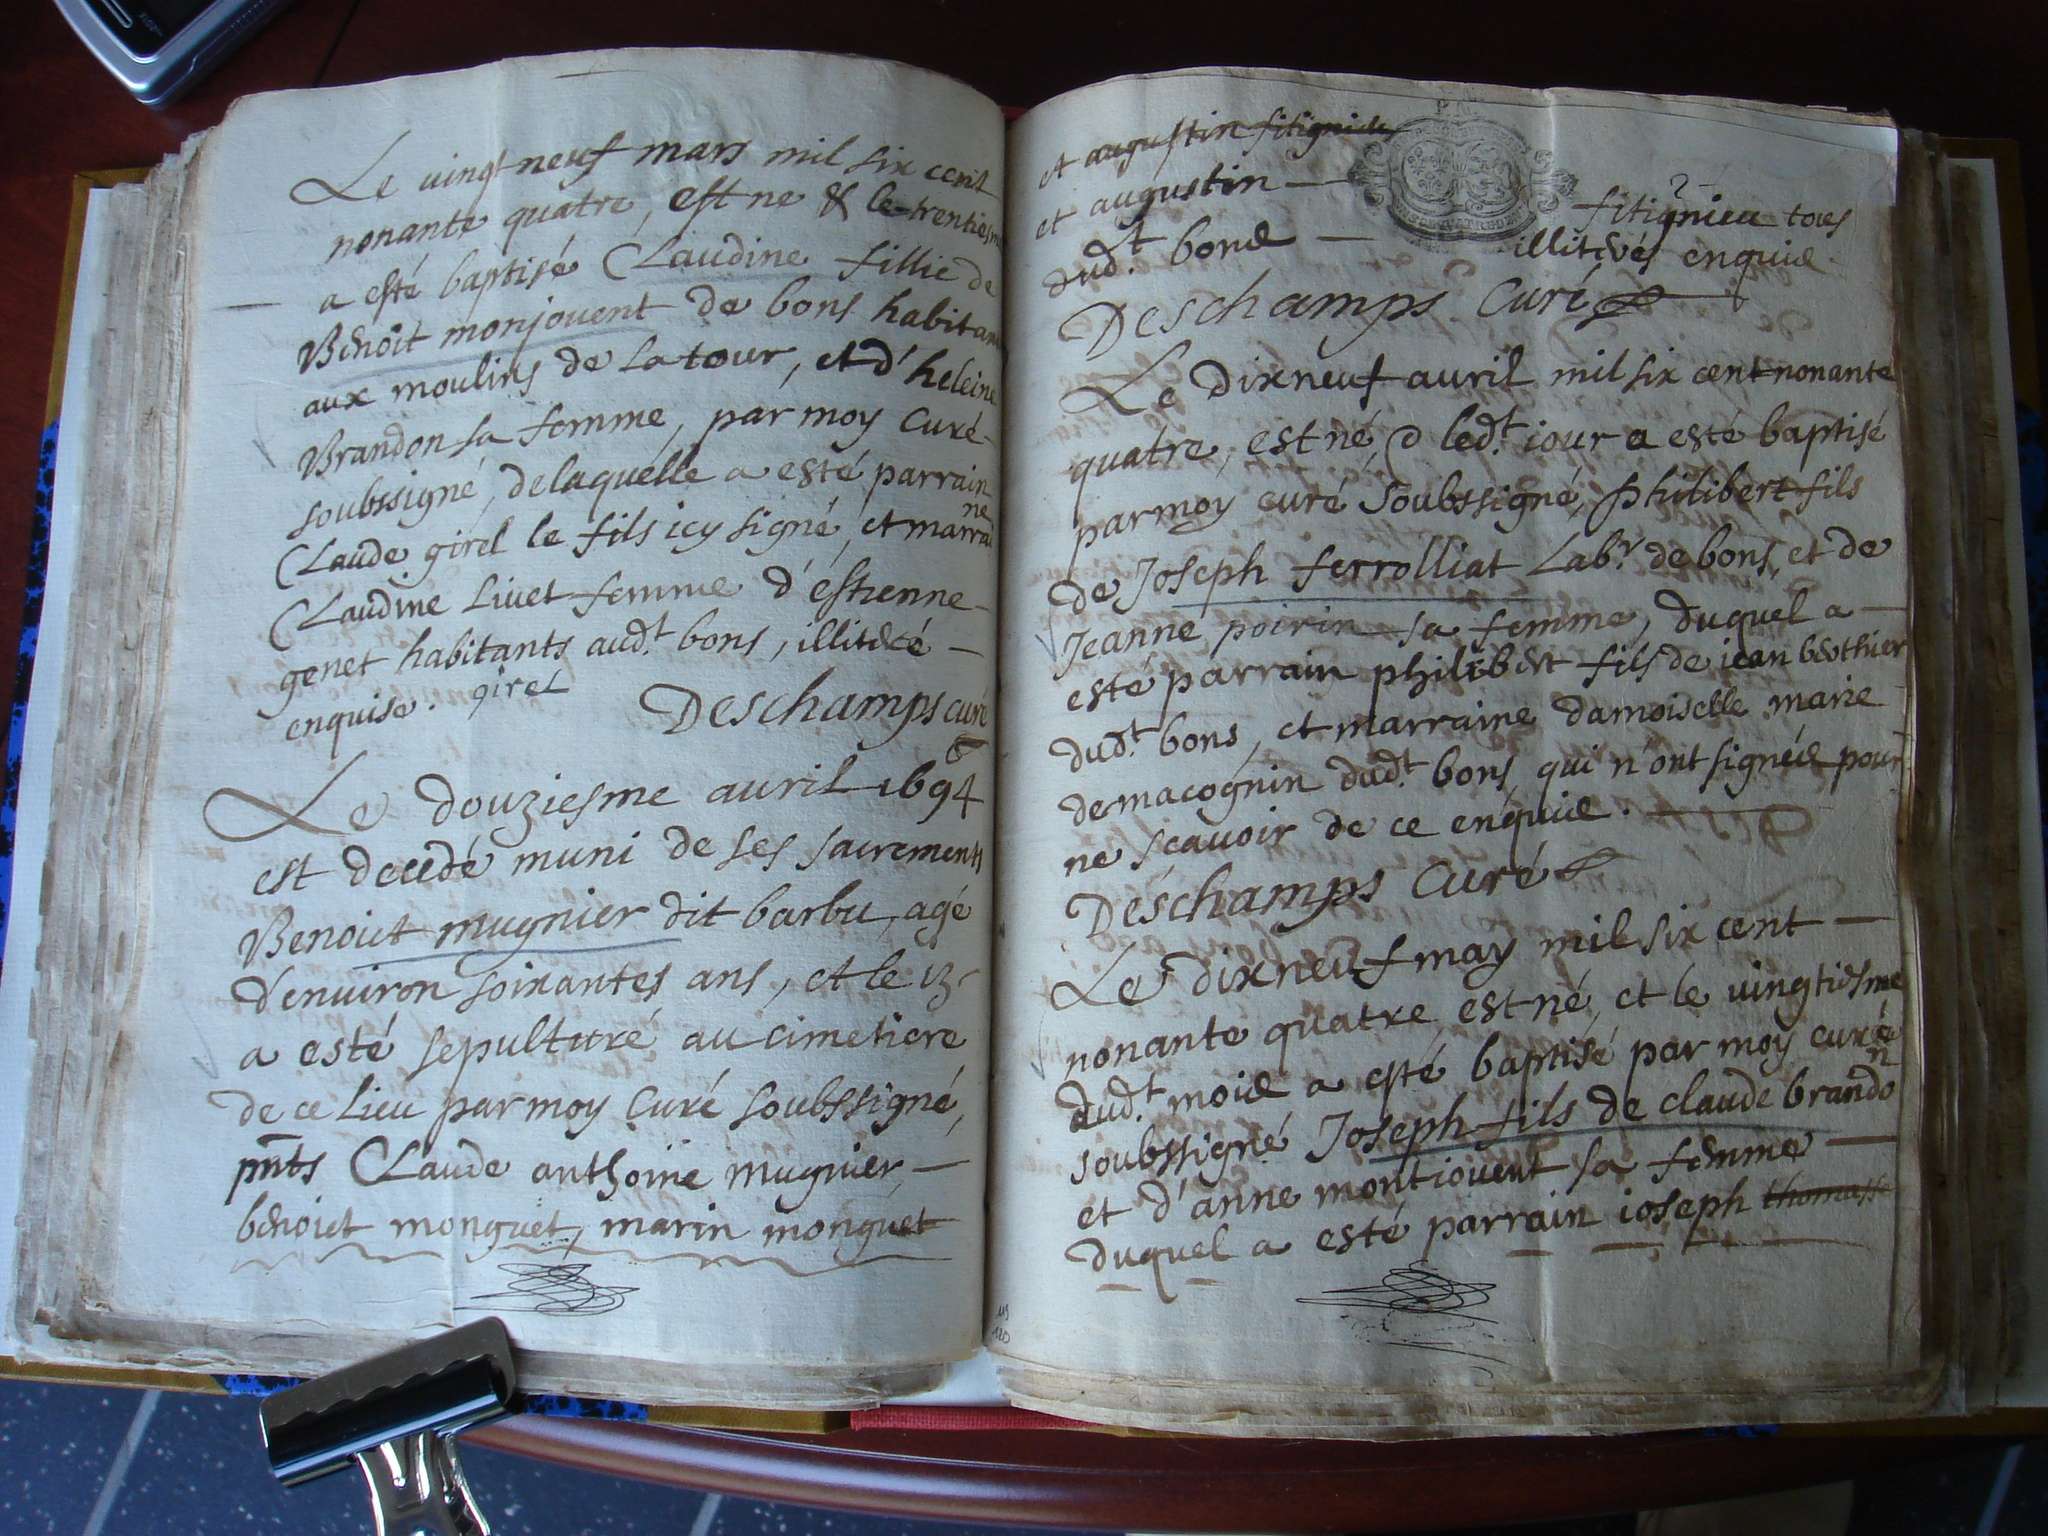 Le vingt neuf mars mil six cent
nonante quatre, est ne & le trentiesme
a esté baptisé Claudine fillie de
Benoit monjouent de bons habitans
aux moulins de la tour, et d'heleine
Brandon sa femme, par moy Curé
soubssigné, de laquelle a esté parrain
Claude girel le fils icy signé, et marraine
Claudine Livet femme d'estienne
genet habitants aud.t bons, illiteré
enquise. girel
Deschamps curé
Le douziesme avril 1694
est decedé muni de ses sacrements
Benoict mugnier dit barbu, agé
d'environ soixantes ans, et le 13
a esté sepulturé au cimetiere
de ce lieu par moy Curé soubssigné,
pnts Claude anthoine mugnier,
benoict monguet, marin monguet
et augustin fitignieu
et augustin fitignieu tous
dud.t bons illiterés enquis
Deschamps Curé
Le dixneuf avril mil six cent nonante
quatre, est né, & led.t iour a esté baptisé
par moy curé soubssigné, philibert fils
de Joseph ferrolliat Lab.r de bons, et de
Jeanne poirin sa femme, duquel a
esté parrain philibert fils de jean berthier
dud.t bons, et marraine damoiselle marie
de macognin dud.t bons, qui n'ont signés pour
ne scavoir de ce enquis.
Deschamps Curé
Le dixneuf may mil six cent
nonante quatre est né, et le vingtiesme
dud.t mois a esté baptisé par moy curé
soubssigné Joseph fils de claude brandon
et d'anne montiouent sa femme
duquel a esté parrain ioseph thomasse
119
120